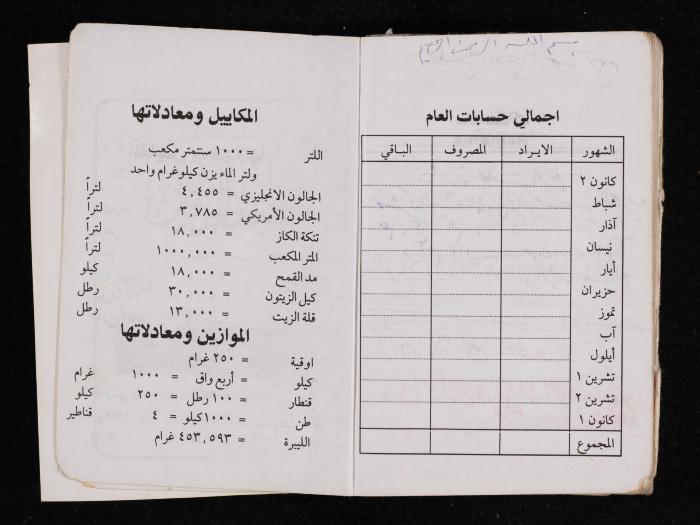 بسم الله الرحمن الرحيم
اجمالي حسابات العام
الشهور الايراد المصروف الباقي
كانون ٢
شباط
آذار
نيسان
أيار
حزيران
تموز
آب
أيلول
تشرين ١
تشرين ٢
كانون ١
المجموع
المكاييل ومعادلاتها
اللتر = ١٠٠٠ سنتمتر مكعب
ولتر الماء يزن كيلوغرام واحد
الجالون الانجليزي = ٤,٤٥٥ لتراً
الجالون الأمريكي = ٣,٧٨٥ لتراً
تنكة الكاز = ١٨,٠٠٠ لتراً
المتر المكعب = ١٠٠٠,٠٠٠ لتراً
مد القمح = ١٨,٠٠٠ كيلو
كيل الزيتون = ٣٠,٠٠٠ رطل
قلة الزيت = ١٣,٠٠٠ رطل
الموازين ومعادلاتها
اوقية = ٢٥٠ غرام
كيلو = أربع واق = ١٠٠٠ غرام
قنطار = ١٠٠ رطل = ٢٥٠ كيلو
طن = ١٠٠٠ كيلو = ٤ قناطير
الليبرة = ٤٥٣,٥٩٣ غرام